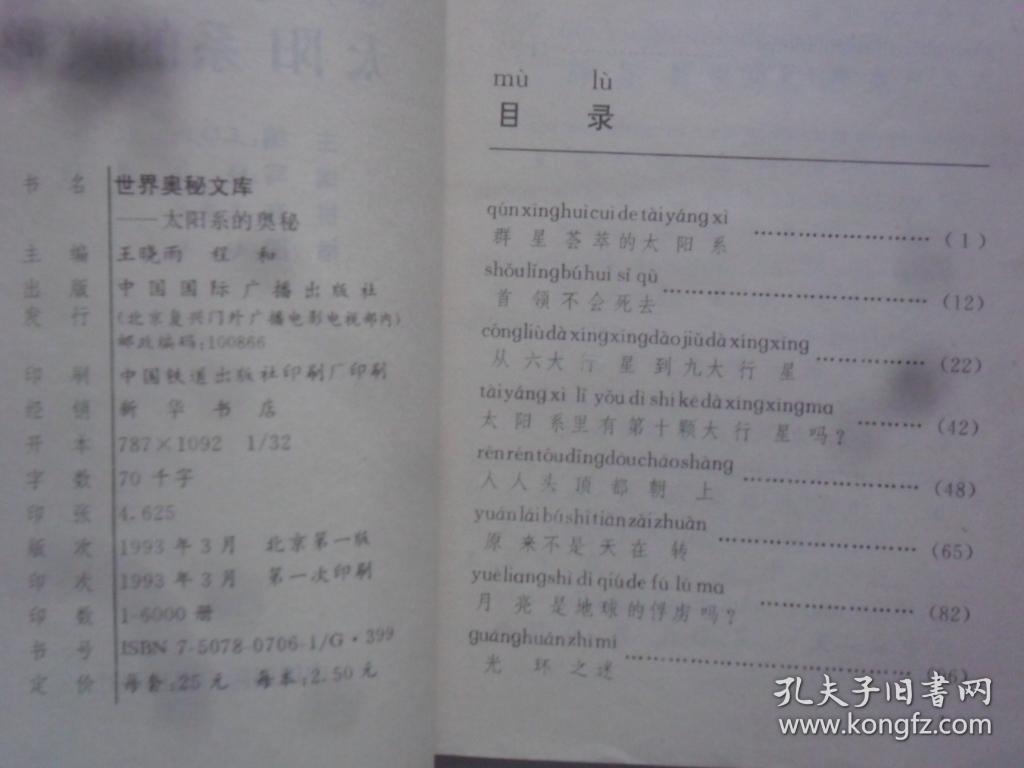 书 名 世界奥秘文库
——太阳系的奥秘
主 编 王晓雨 程 和
出 版 中国国际广播出版社
发 行 (北京复兴门外广播电影电视部内)
邮政编码:100866
印 刷 中国铁道出版社印刷厂印刷
经 销 新 华 书 店
开 本 787×1092 1/32
字 数 70 千字
印 张 4.625
版 次 1993 年 3 月 北京第一版
印 次 1993 年 3 月 第一次印刷
印 数 1-6000 册
书 号 ISBN 7-5078-0706-1/G·399
定 价 每套:25 元 每本:2.50 元
mù lù
目 录
qúnxīnghuìcuìdetàiyángxì
群星荟萃的太阳系 ……………………… (1)
shǒulǐngbúhuìsǐqù
首领不会死去 ……………………… (12)
cóngliùdàxíngxīngdàojiǔdàxíngxīng
从六大行星到九大行星 ………… (22)
tàiyángxì lǐ yǒudìshíkēdàxíngxīngma
太阳系里有第十颗大行星吗? ……… (42)
rénréntóudǐngdōucháoshàng
人人头顶都朝上 ……………… (48)
yuánláibúshìtiānzàizhuàn
原来不是天在转 ……………… (65)
yuèliangshìdìqiúdefúlǔma
月亮是地球的俘虏吗? ……………… (82)
guānghuánzhīmí
光环之迷 ………………………
孔夫子旧书网
www.kongfz.com